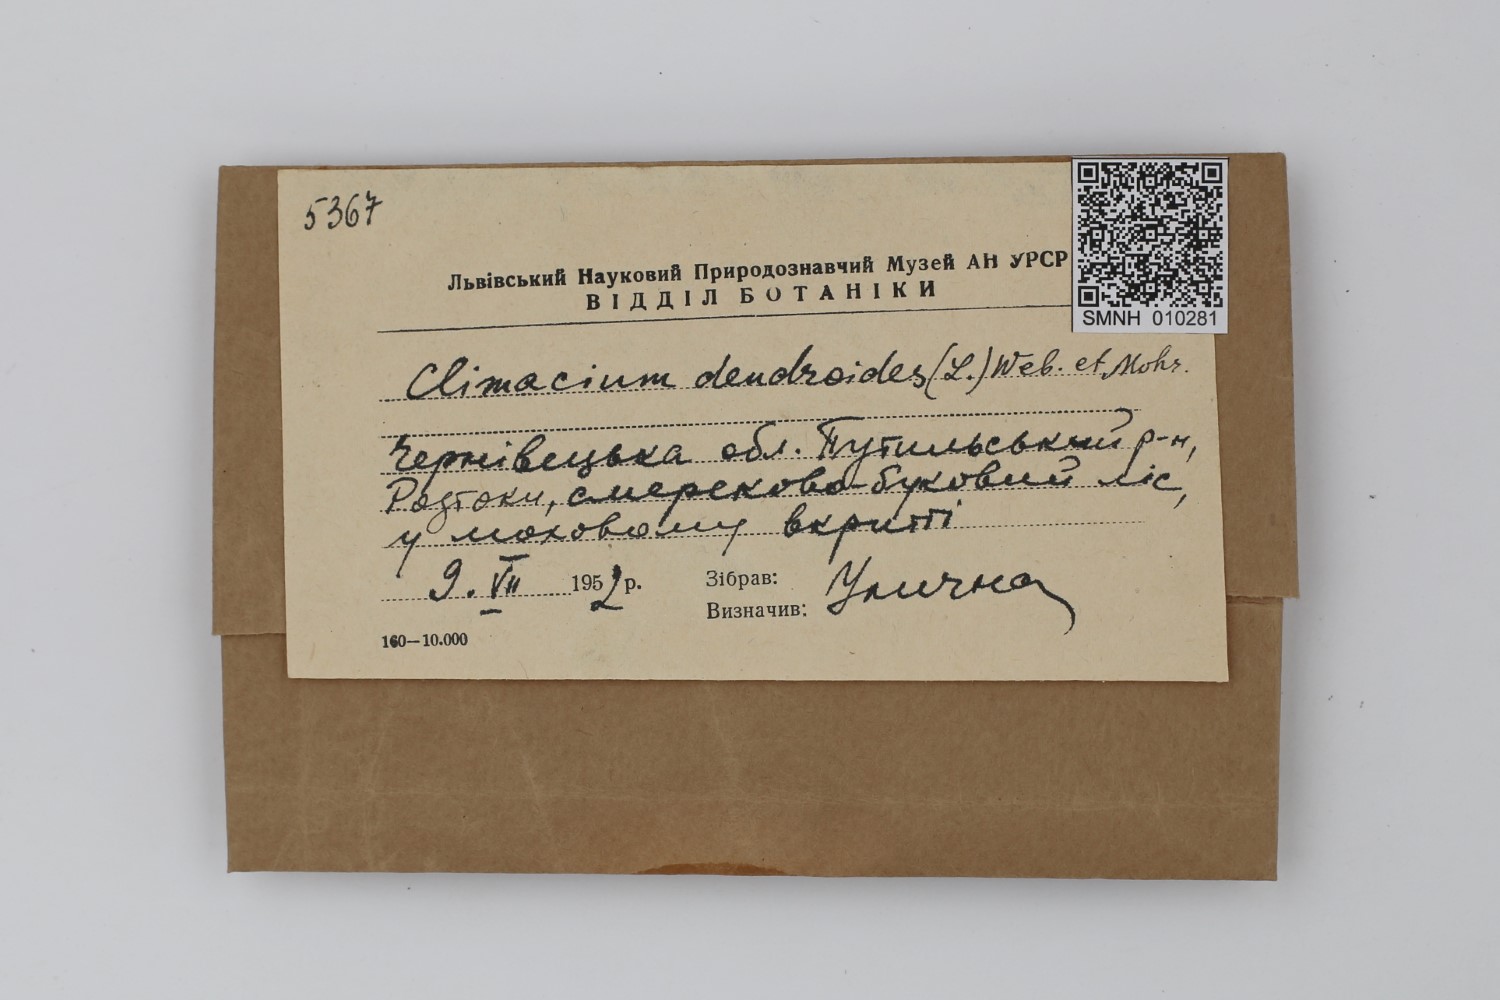 5367
Львівський Науковий Природознавчий Музей АН УРСР
ВІДДІЛ БОТАНІКИ
SMNH 010281
Climacium dendroides (L.) Web. et Mohr.
Чернівецька обл. Путильський р-н,
Розтоки, смереково-буковий ліс,
у моховому вкритті
9. VII 1952 р.
Зібрав: Улична
Визначив:
160—10.000